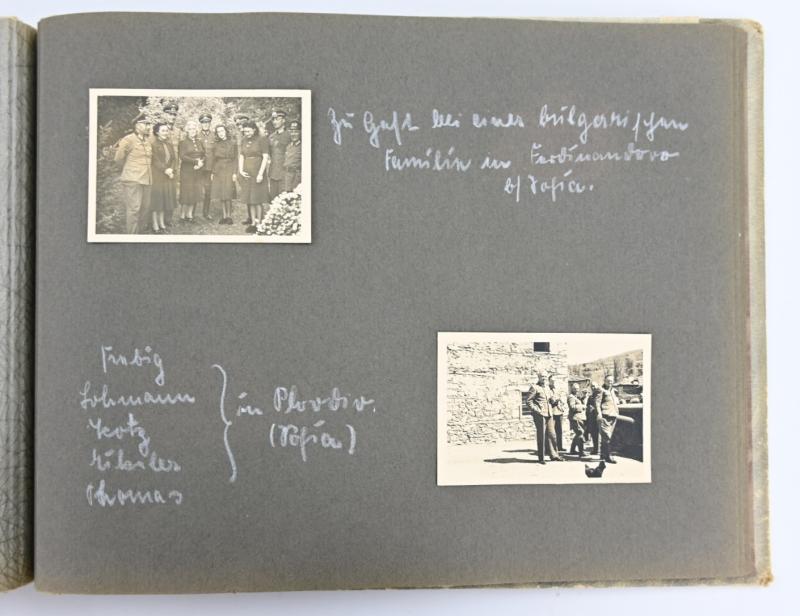 Zu Gast bei einer bulgarischen
Familie in Ferdinandovo
b/ Sofia.
Fiebig
Lohmann
in Plovdiv.
(Sofia)
Thomas